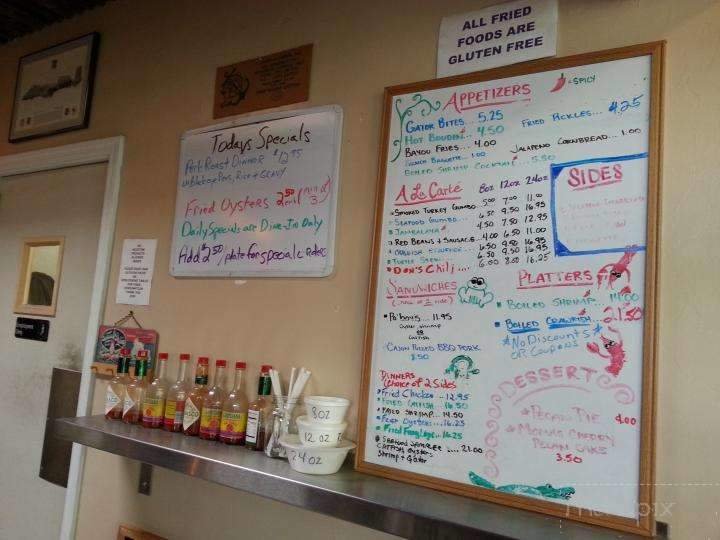 ALL FRIED
FOODS ARE
GLUTEN FREE
Todays Specials
Pork Roast DINNER $12.95
w/Blackeye Peas, Rice + GRAVY
FRIED Oysters 2.50 each (min of 3)
Daily Specials are Dine-In Only
Add $2.50/plate for special orders
APPETIZERS
=SPICY
GATOR BITES... 5.25
HOT BOUDIN 4.50
BAYOU FRIES... 4.00
FRENCH BAGUETTE... 1.00
BOILED SHRIMP COCKTAIL... 5.50
FRIED PICKLES... 4.25
JALAPENO CORNBREAD... 1.00
A La Carté 8oz 12oz 24oz
SMOKED TURKEY GUMBO 5.00 7.00 11.00
SEAFOOD GUMBO... 6.50 9.50 16.95
JAMBALAYA 4.50 7.50 12.95
RED BEANS & SAUSAGE... 4.00 6.50 11.00
CRAWFISH ETOUFFEE... 6.50 9.50 16.95
TURTLE STEW 6.50 9.50 16.95
DON'S CHILI.... 6.00 8.50 16.25
SIDES
SANDWICHES
Po'boys... 11.95
Oyster, shrimp
or
catfish
CAJUN PULLED BBQ PORK
8.50
PLATTERS
BOILED SHRIMP... 14.00
BOILED CRAWFISH... 21.50
*No Discounts
OR COUPONS*
DINNERS
(choice of 2 Sides)
Fried Chicken... 12.95
FRIED CATFISH... 16.50
FRIED SHRIMP... 14.50
FRIED OYSTERS... 16.25
Fried Frog Legs... 16.25
SEAFOOD SAMPLER... 21.00
CATFISH, OYSTERS
Shrimp + Gator
DESSERT
PECAN PIE 4.00
PECAN CAKE
3.50
8OZ
12 OZ
24 OZ